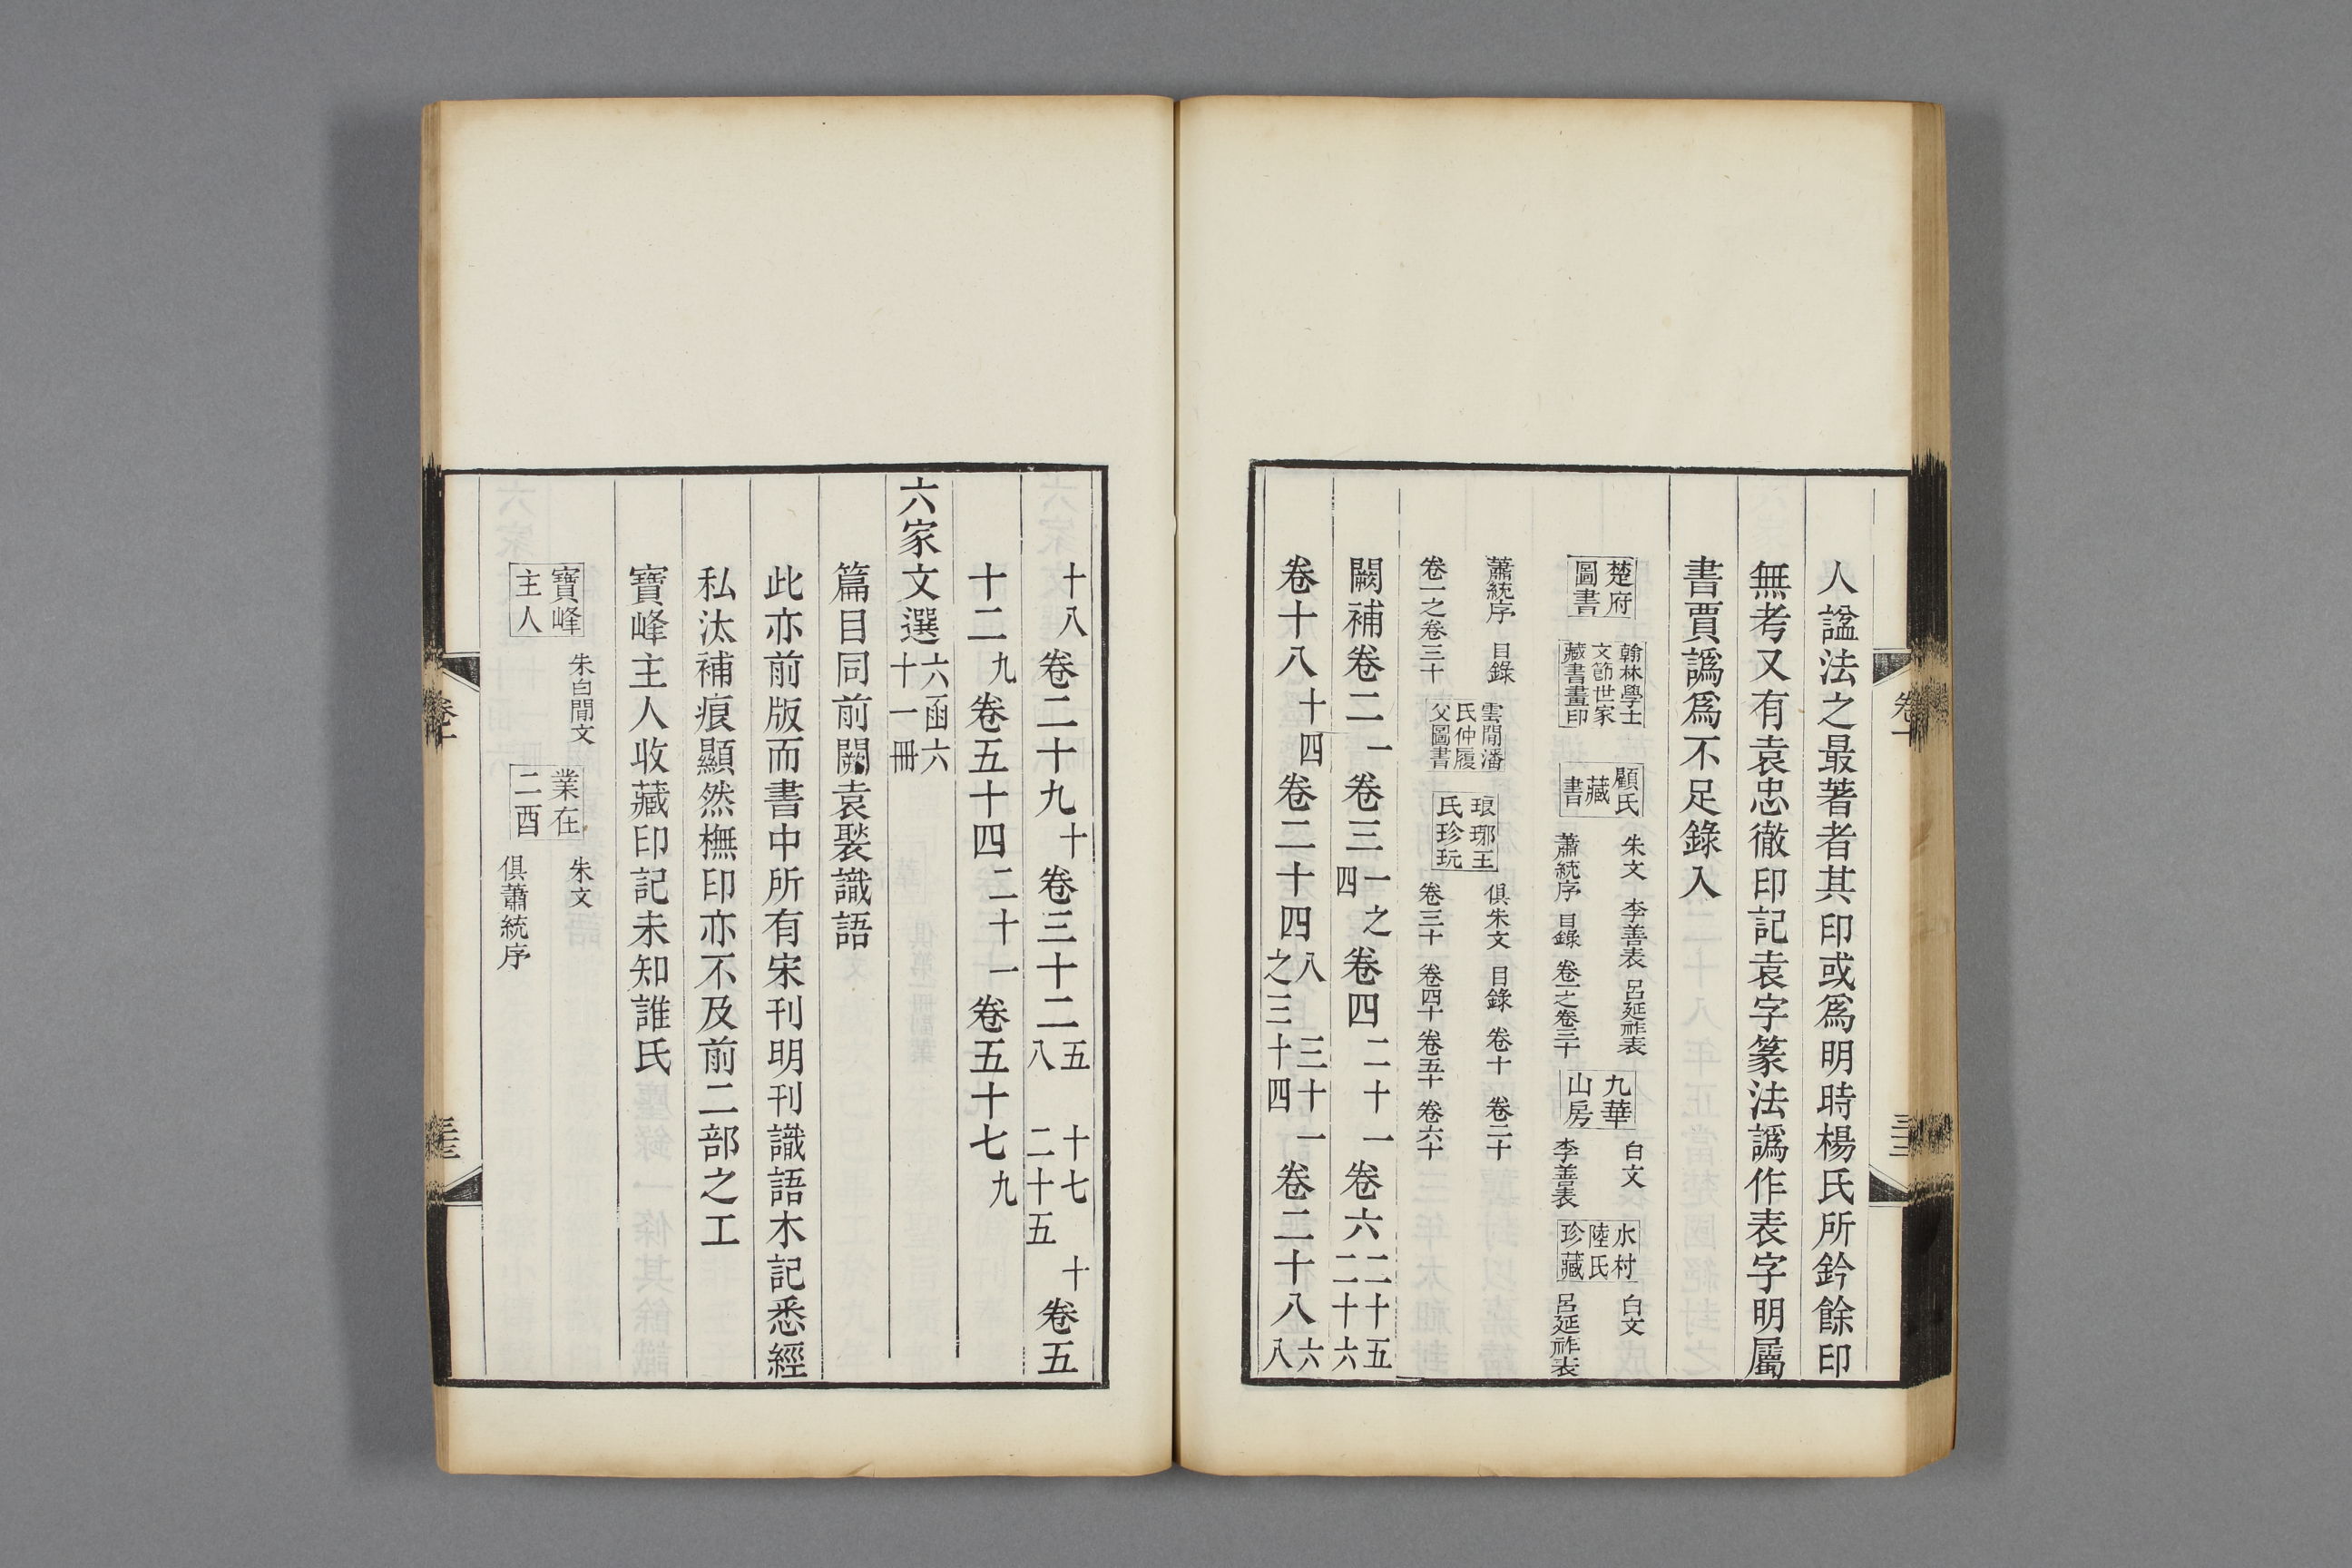 人諡法之最著者其印或爲明時楊氏所鈐餘印
無考又有袁忠徹印記袁字篆法譌作表字明屬
書賈譌爲不足錄入
楚府圖書
翰林學士文節世家藏書畫印
顧氏藏書
朱文 李善表 呂延祚表
蕭統序 目錄 卷一之卷三十
九華山房
白文
李善表
水村陸氏珍藏
白文
呂延祚表
蕭統序 目錄
卷一之卷三十
雲間潘氏仲履父圖書
琅琊王氏珍玩
俱朱文 目錄 卷十 卷二十
卷三十 卷四十 卷五十 卷六十
闕補卷二一卷三一之四卷四二十一卷六二十五二十六
卷十八十四卷二十四八之三三十一十四卷二十八六八
十八卷二十九十卷三十二五八 十七二十五 十卷五
十二九卷五十四二十一卷五十七九
六家文選六函六十一冊
篇目同前闕袁褧識語
此亦前版而書中所有宋刊明刊識語木記悉經
私汰補痕顯然橅印亦不及前二部之工
寶峰主人收藏印記未知誰氏
寶峰主人
朱白閒文
業在二酉
朱文
俱蕭統序